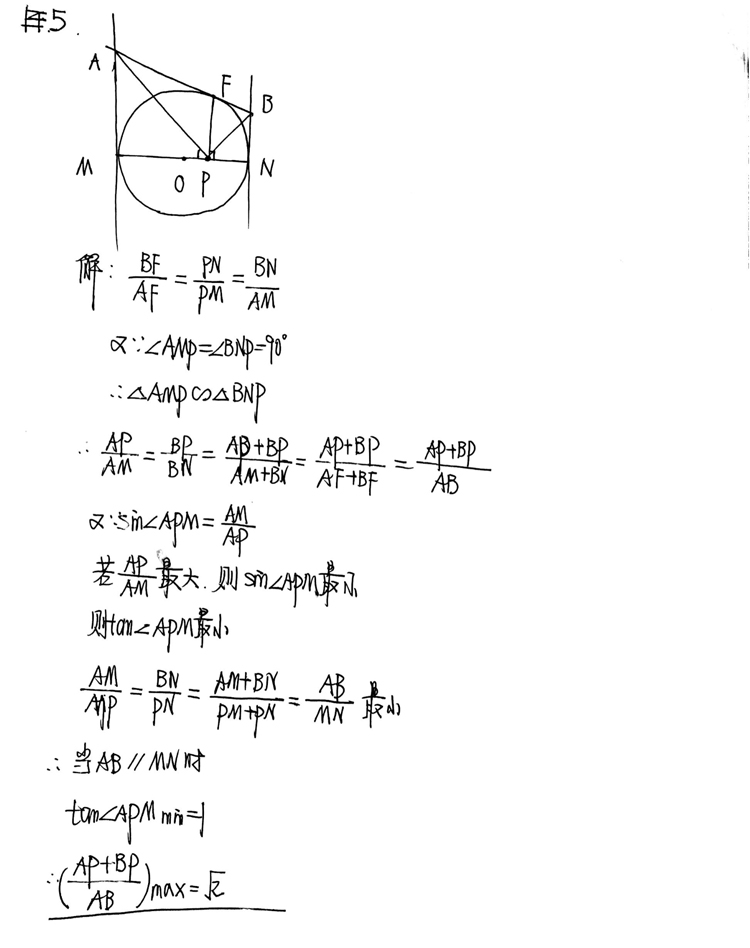 5.
A
F
B
M
O
P
N
解: BF/AF = PN/PM = BN/AM
又∵∠AMP=∠BNP=90°
∴△AMP∽△BNP
∴ AP/AM = BP/BN = (AP+BP)/(AM+BN) = (AP+BP)/(AF+BF) = (AP+BP)/AB
又∵sin∠APM = AM/AP
若 AP/AM 最大. 则 sin∠APM最小
则tan∠APM最小
AM/MP = BN/PN = (AM+BN)/(PM+PN) = AB/MN 最小
∴ 当AB∥MN时
tan∠APM min=1
∴ ((AP+BP)/AB) max = √2